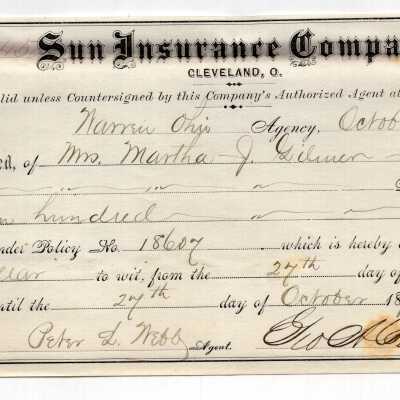 Sun Insurance Compa
CLEVELAND, O.
lid unless Countersigned by this Company's Authorized Agent at
Warren Ohio Agency, Octob
ed, of Mrs. Martha J. Gilmer
hundred
nder Policy No. 18607 which is hereby
to wit, from the 27th day of
ntil the 27th day of October 18
Peter L. Webb Agent. Geo A